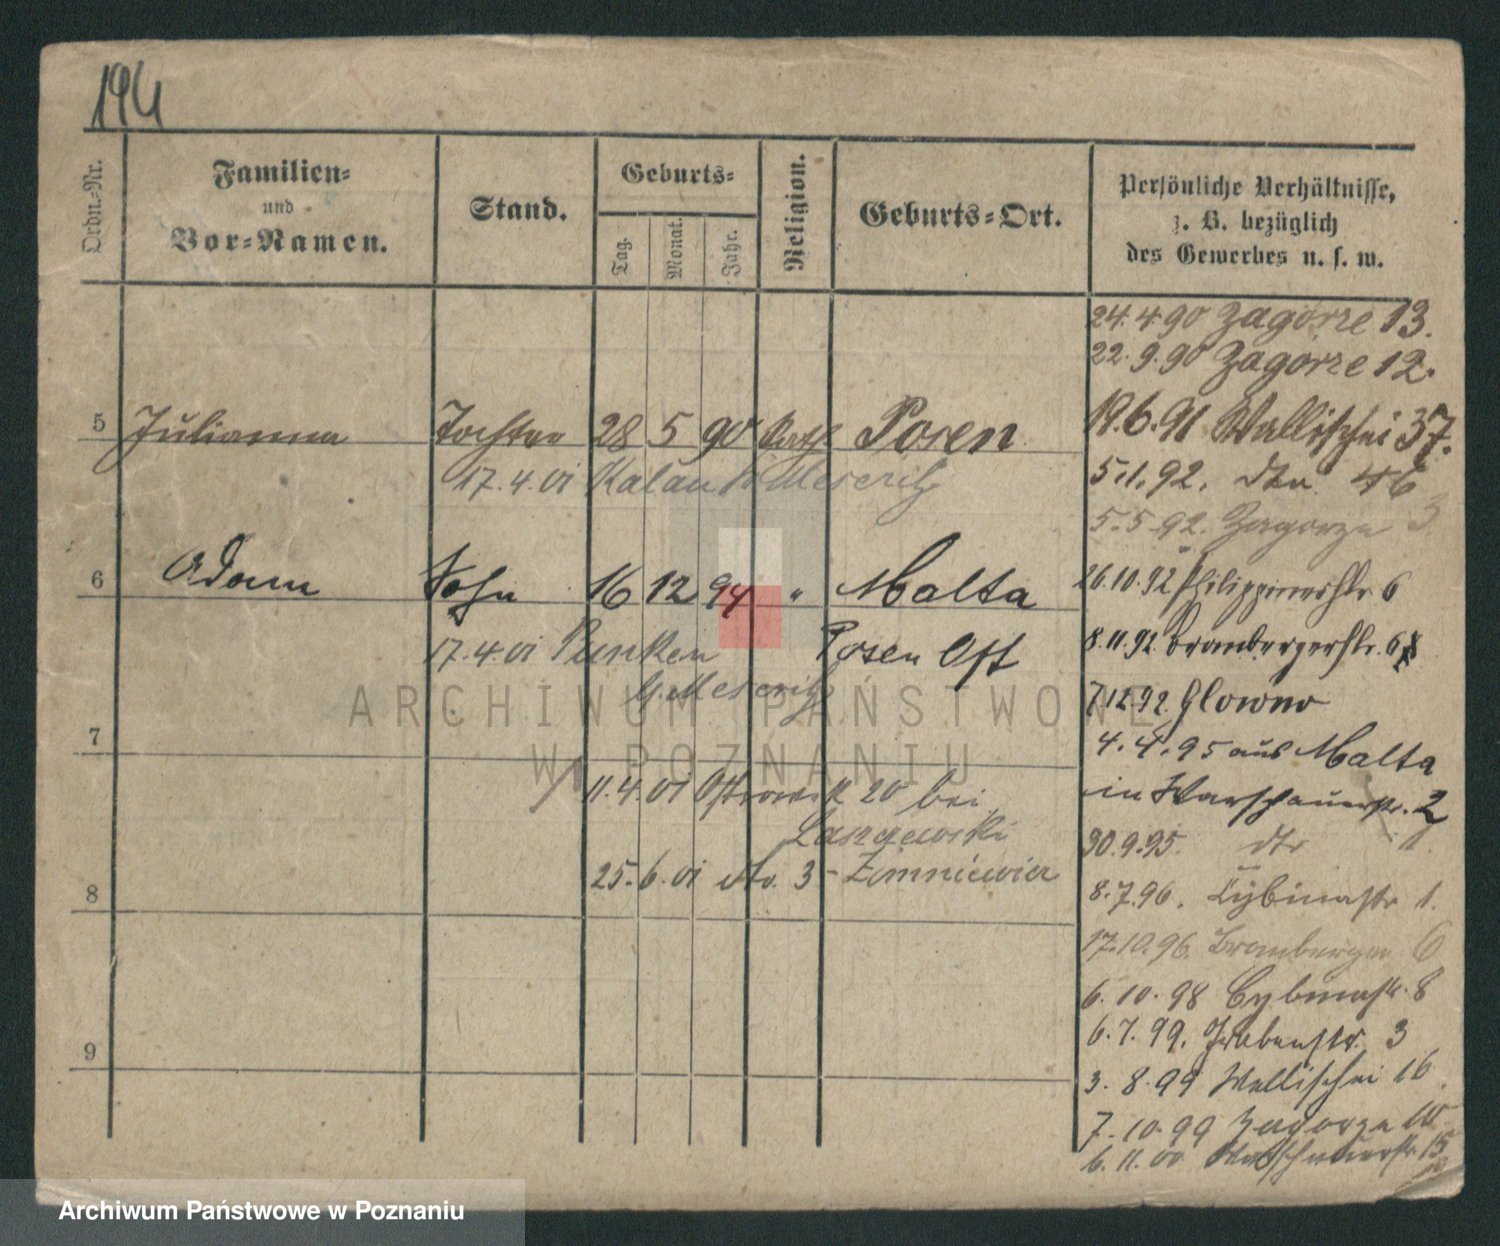 194
Ordn.-Nr.
Familien-
und
Vor-Namen.
Stand.
Geburts-
Tag.
Monat.
Jahr.
Religion.
Geburts-Ort.
Persönliche Verhältnisse,
z. B. bezüglich
des Gewerbes u. s. w.
24. 4. 90 Zagórze 13.
22. 9. 90 Zagórze 12.
5 Julianna Tochter 28 5 90 Kath Posen
17. 4. 01 Kalau Kr. Meseritz
19. 6. 91 Wallischei 37.
5. 1. 92. dto 46
5. 5. 92. Zagorze 3
6 Adam Sohn 16 12 94 " Malta
17. 4. 01 Kr. Meseritz
Posen Ost
26. 10. 92 Philippinerstr 6
8. 11. 92 Brombergerstr. 6
7. 12. 92. Glowno
7
4. 4. 95 aus Malta
in Warschauerstr. 2
11. 4. 01 Ostrowek 20 bei
30. 9. 95. dto
25. 6. 01 dto. 3 - Zimniewicz
8
8. 7. 96. Cybinastr 1.
17. 10. 96. Bromberger 6
6. 10. 98 Cybinastr. 8
6. 7. 99. Grabenstr. 3
9
3. 8. 99 Wallischei 16
7. 10. 99 Zagorze 10
6. 11. 00 Warschauerstr. 15
ARCHIWUM PAŃSTWOWE
W POZNANIU
Archiwum Państwowe w Poznaniu